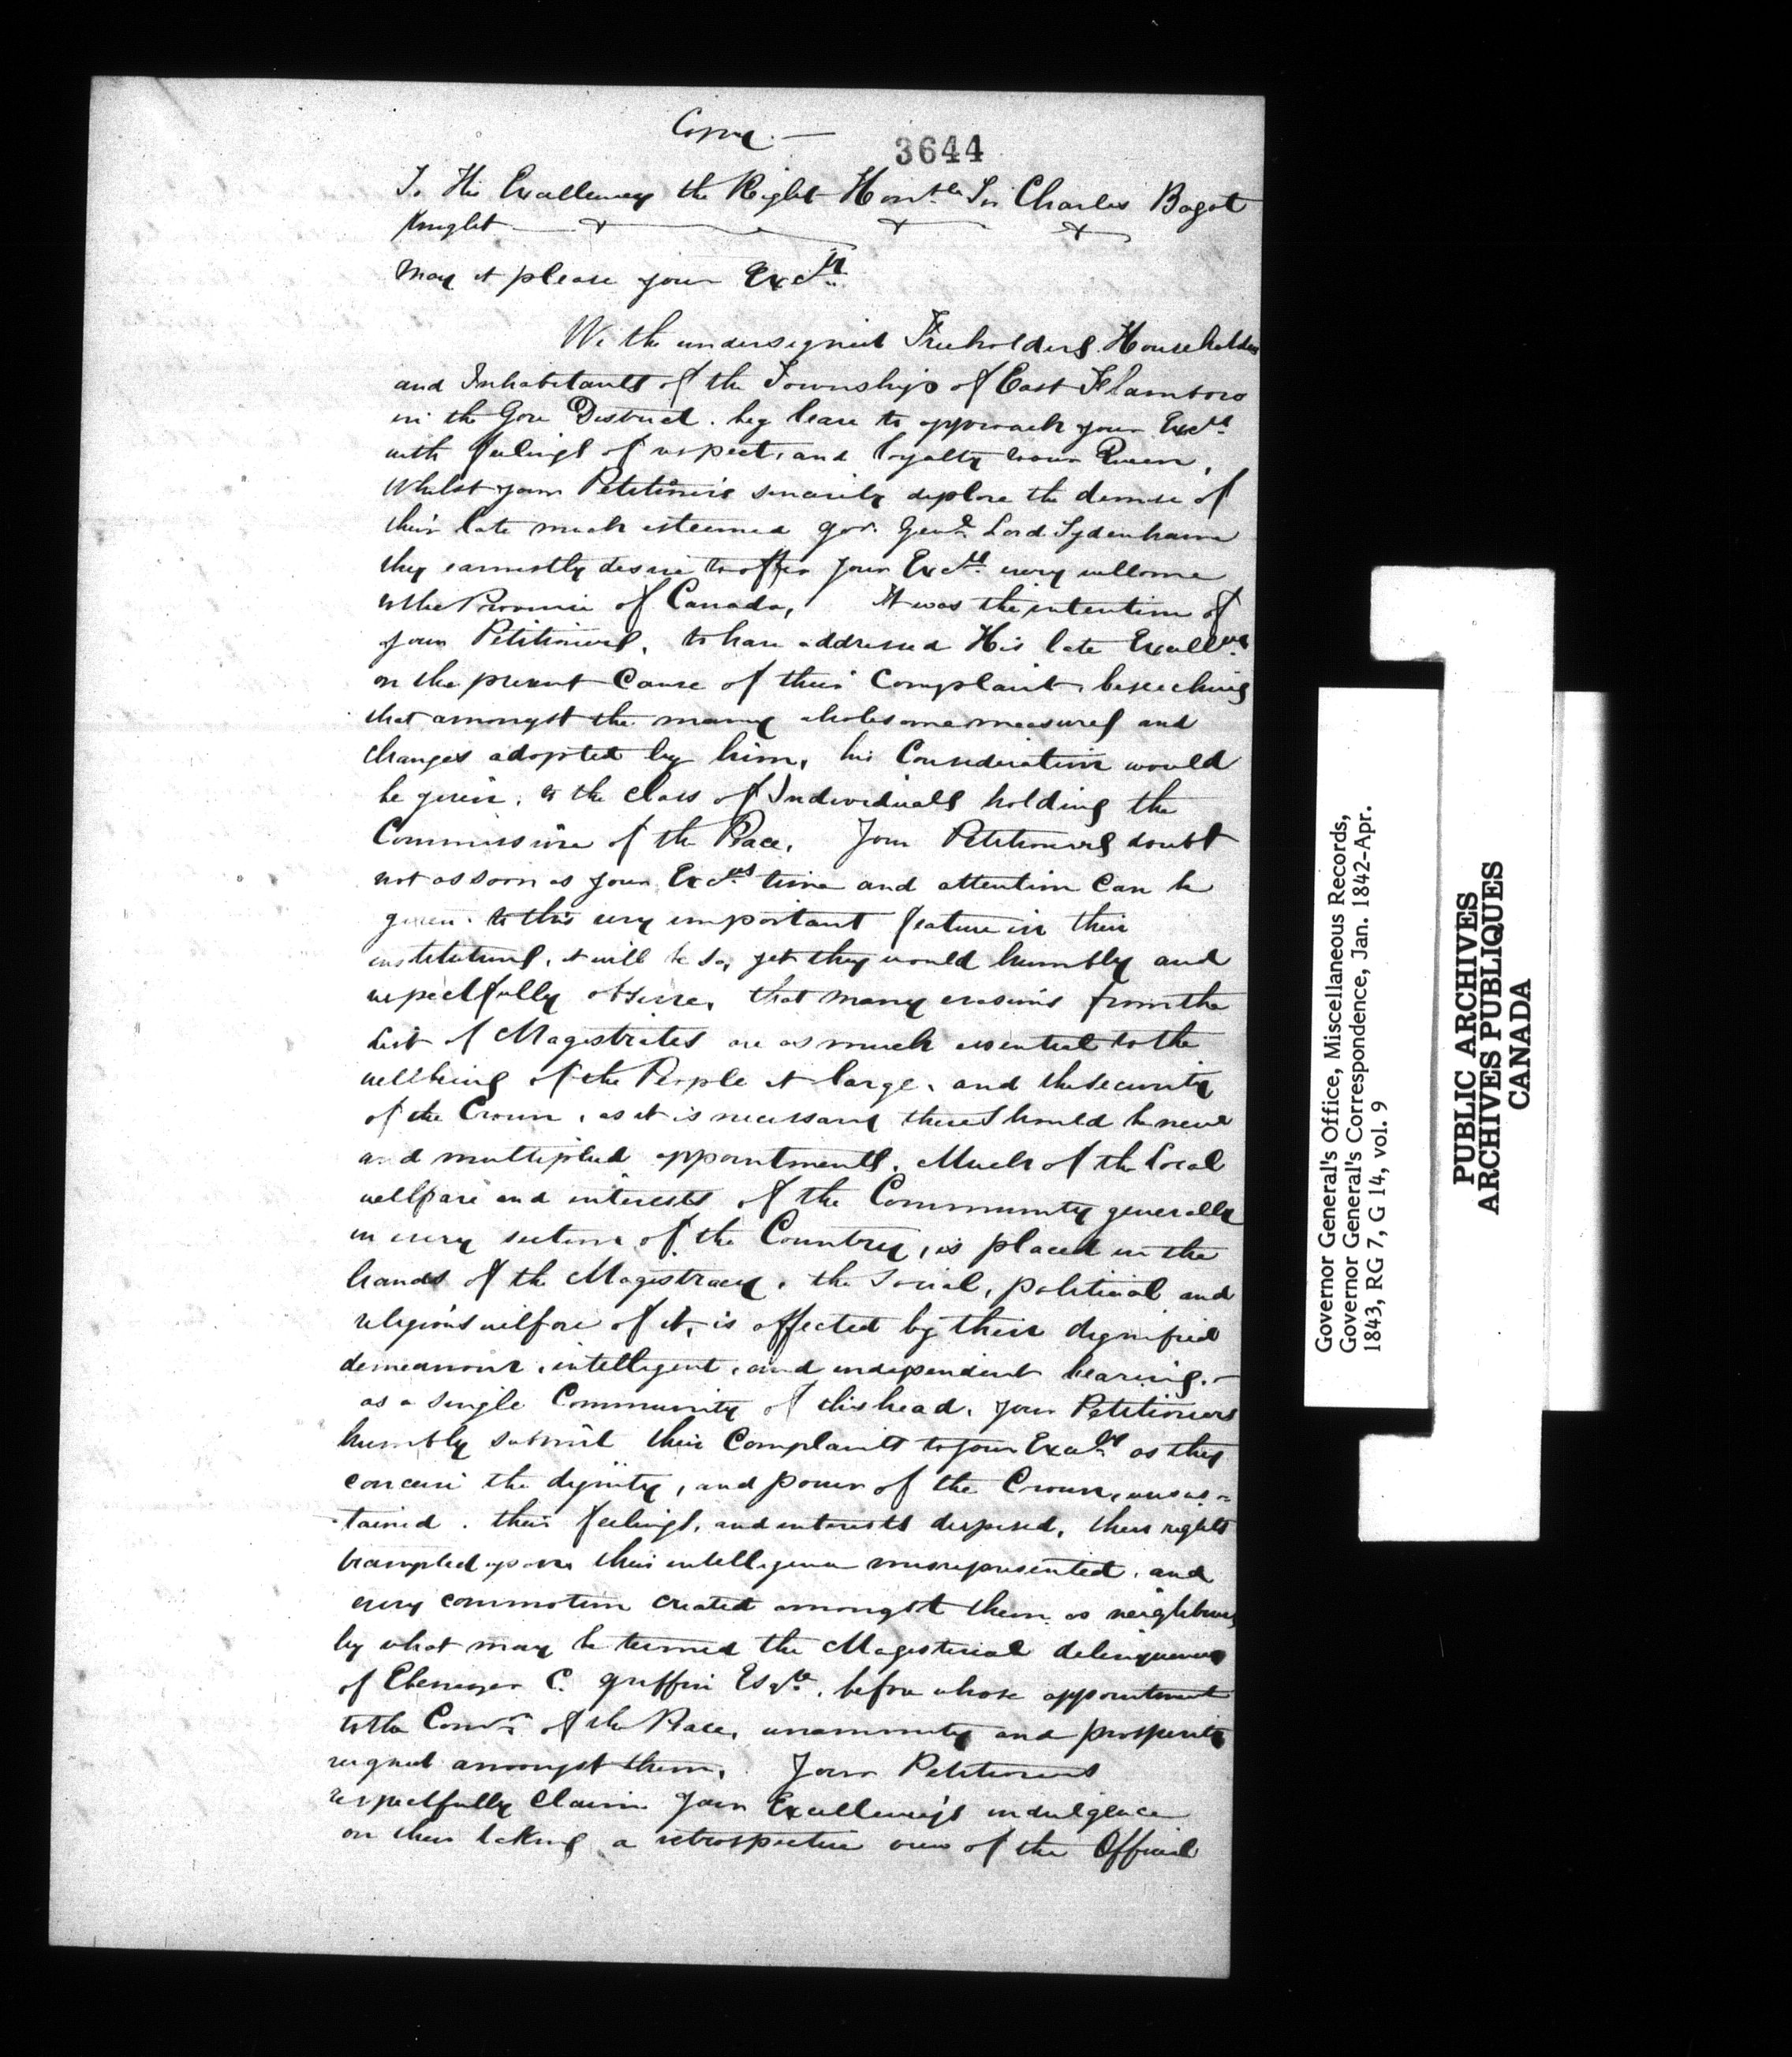 Copy. —
3644
To His Excellency the Right Honble Sir Charles Bagot
Knight
May it please your Excy
We the undersigned Freeholders Householders
and Inhabitants of the Township of East Flamboro
in the Gore District. beg leave to approach your Excy
with feelings of respect, and loyalty to our Queen,
Whilst your Petitioners sincerely deplore the demise of
their late much esteemed Gov. Genl Lord Sydenham
they earnestly desire to offer your Excy every wellcome
to the Province of Canada, It was the intention of
your Petitioners, to have addressed His late Excelly
on the present Cause of their Complaint, beseeching
that amongst the many wholesome measures and
changes adopted by him, his Consideration would
be given, to the Class of Individuals holding the
Commission of the Peace, Your Petitioners doubt
not as soon as your Excys time and attention Can be
given to this very important feature in their
institutions, it will be so, yet they would humbly and
respectfully observe, that many erasions from the
List of Magistrates are as much essential to the
wellbeing of the People at large, and the security
of the Crown, as it is necessary there should be new
and multiplied appointments. Much of the Local
wellfare and interests of the Community generally
in every section of the Country, is placed in the
hands of the Magistracy, the Social, political and
religious wilfare of it, is affected by their dignified
demeanour, intelligent, and independent bearing. —
as a single Community of this head, your Petitioners
humbly submit their Complaints to your Excelly as they
conceive the dignity, and power of the Crown, unsus-
tained. their feelings, and interests despised, their rights
trampled upon, their intelligence misrepresented, and
every commotion created amongst them as neighbours
by what may be termed the Magisterial delinquency
of Ebenezer C. Griffin Esqre, before whose appointment
to the Comn of the Peace, unanimity and prosperity
reigned amongst them, Your Petitioners
respectfully Claim your Excellency's indulgence
on their taking a retrospective view of the Official
Governor General's Office, Miscellaneous Records,
Governor General's Correspondence, Jan. 1842-Apr.
1843, RG 7, G 14, vol. 9
PUBLIC ARCHIVES
ARCHIVES PUBLIQUES
CANADA